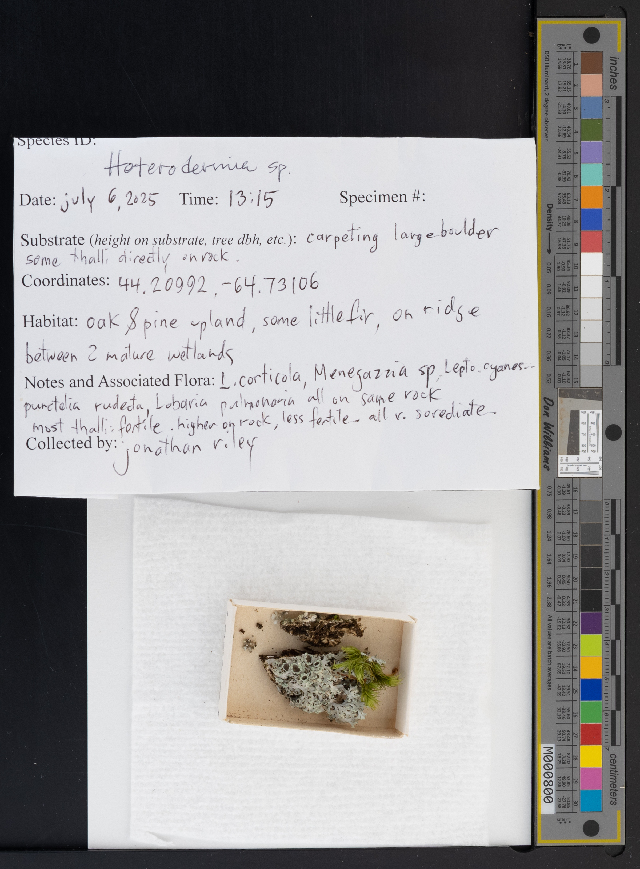 Species ID:
Heterodermia sp.
Date: july 6, 2025 Time: 13:15 Specimen #:
Substrate (height on substrate, tree dbh, etc.): carpeting large boulder
some thalli directly on rock.
Coordinates: 44.20992, -64.73106
Habitat: oak & pine upland, some little fir, on ridge
between 2 mature wetlands
Notes and Associated Flora: L. corticola, Menegazzia sp, Lepto. cyanes--
punctelia rudecta, Lobaria pulmonaria all on same rock
most thalli fertile. higher on rock, less fertile - all v. sorediate-
Collected by: jonathan riley
inches
Density
Don Williams
M000800
centimeters